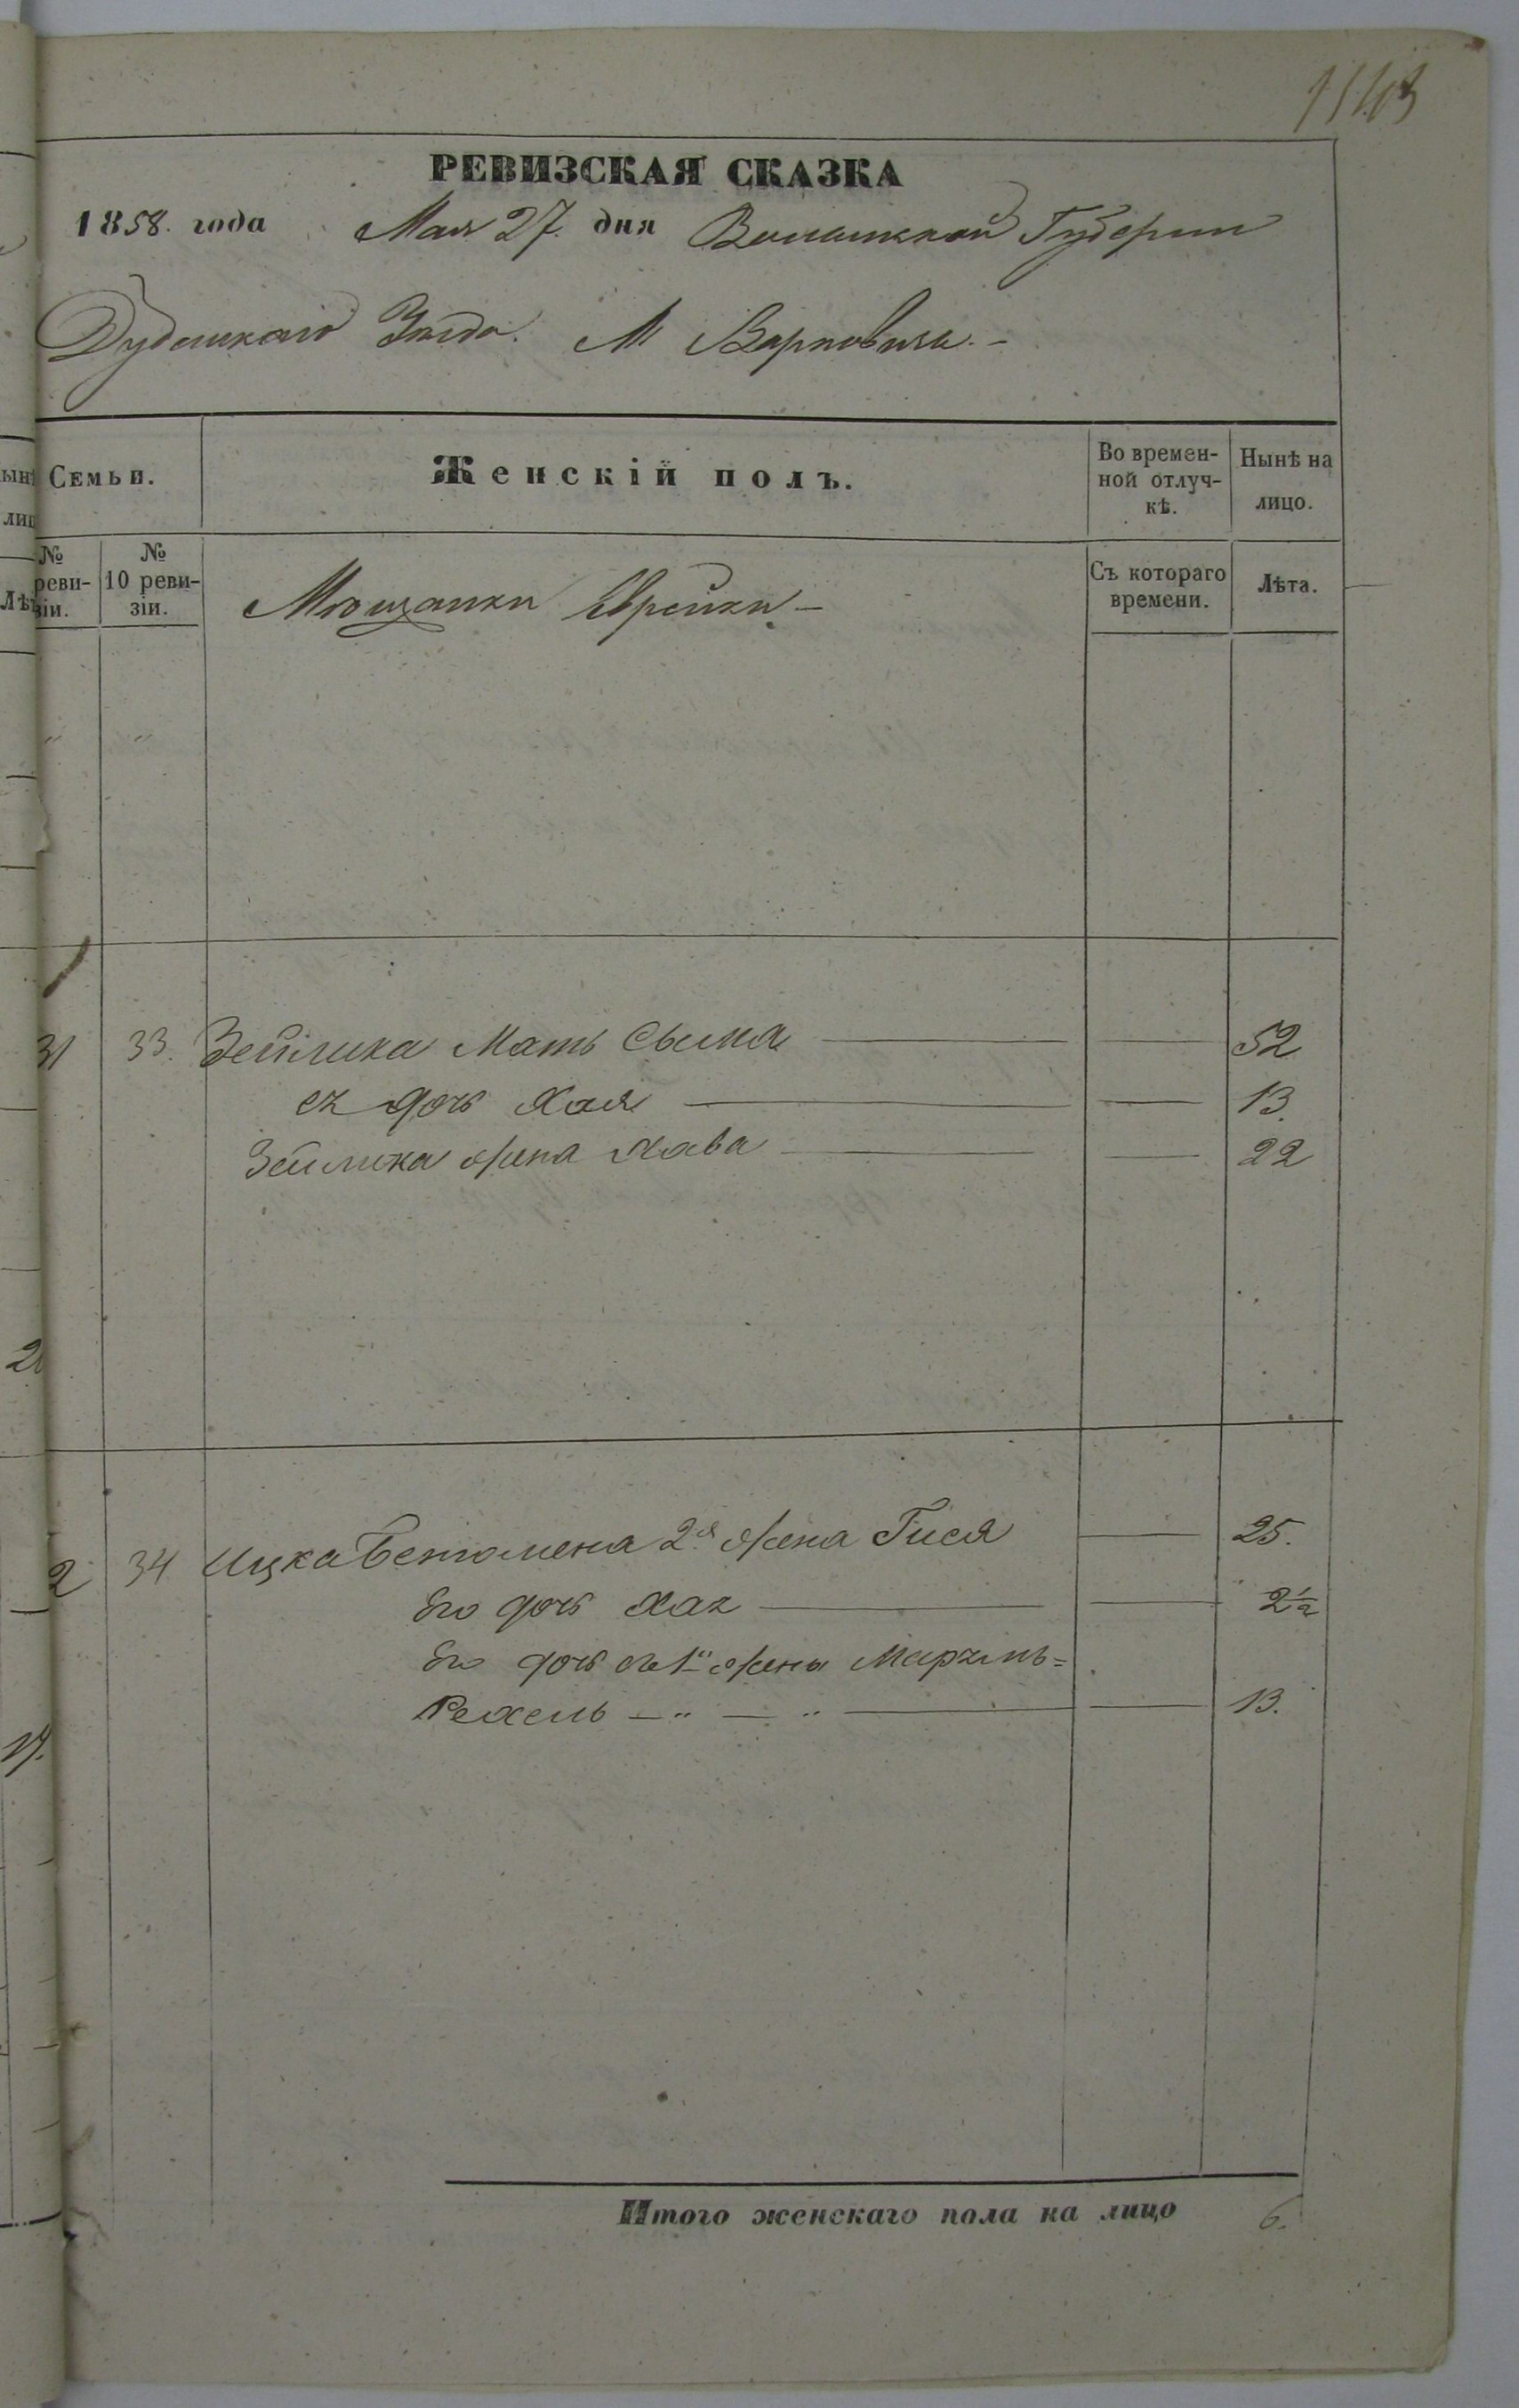 РЕВИЗСКАЯ СКАЗКА
1858. года Мая 27. дня Волынской Губернии
Дубенскаго Уѣзда. М Варковичь.-
Семьи.
Женскій полъ.
Во времен-
ной отлуч-
кѣ.
Нынѣ на
лицо.
№
реви-
зіи.
№
10 реви-
зіи.
Мѣщанки Еврейки.-
Съ котораго
времени.
Лѣта.
" "
31 33. Зейлика Мать Сыма 52
ея дочь Хая 13.
Зейлика жена Хава 22
2 34 Ицка 2я жена Гися 25.
Его дочь 2½
Его дочь жены
Рехель - " - " 13.
Итого женскаго пола на лицо 6.